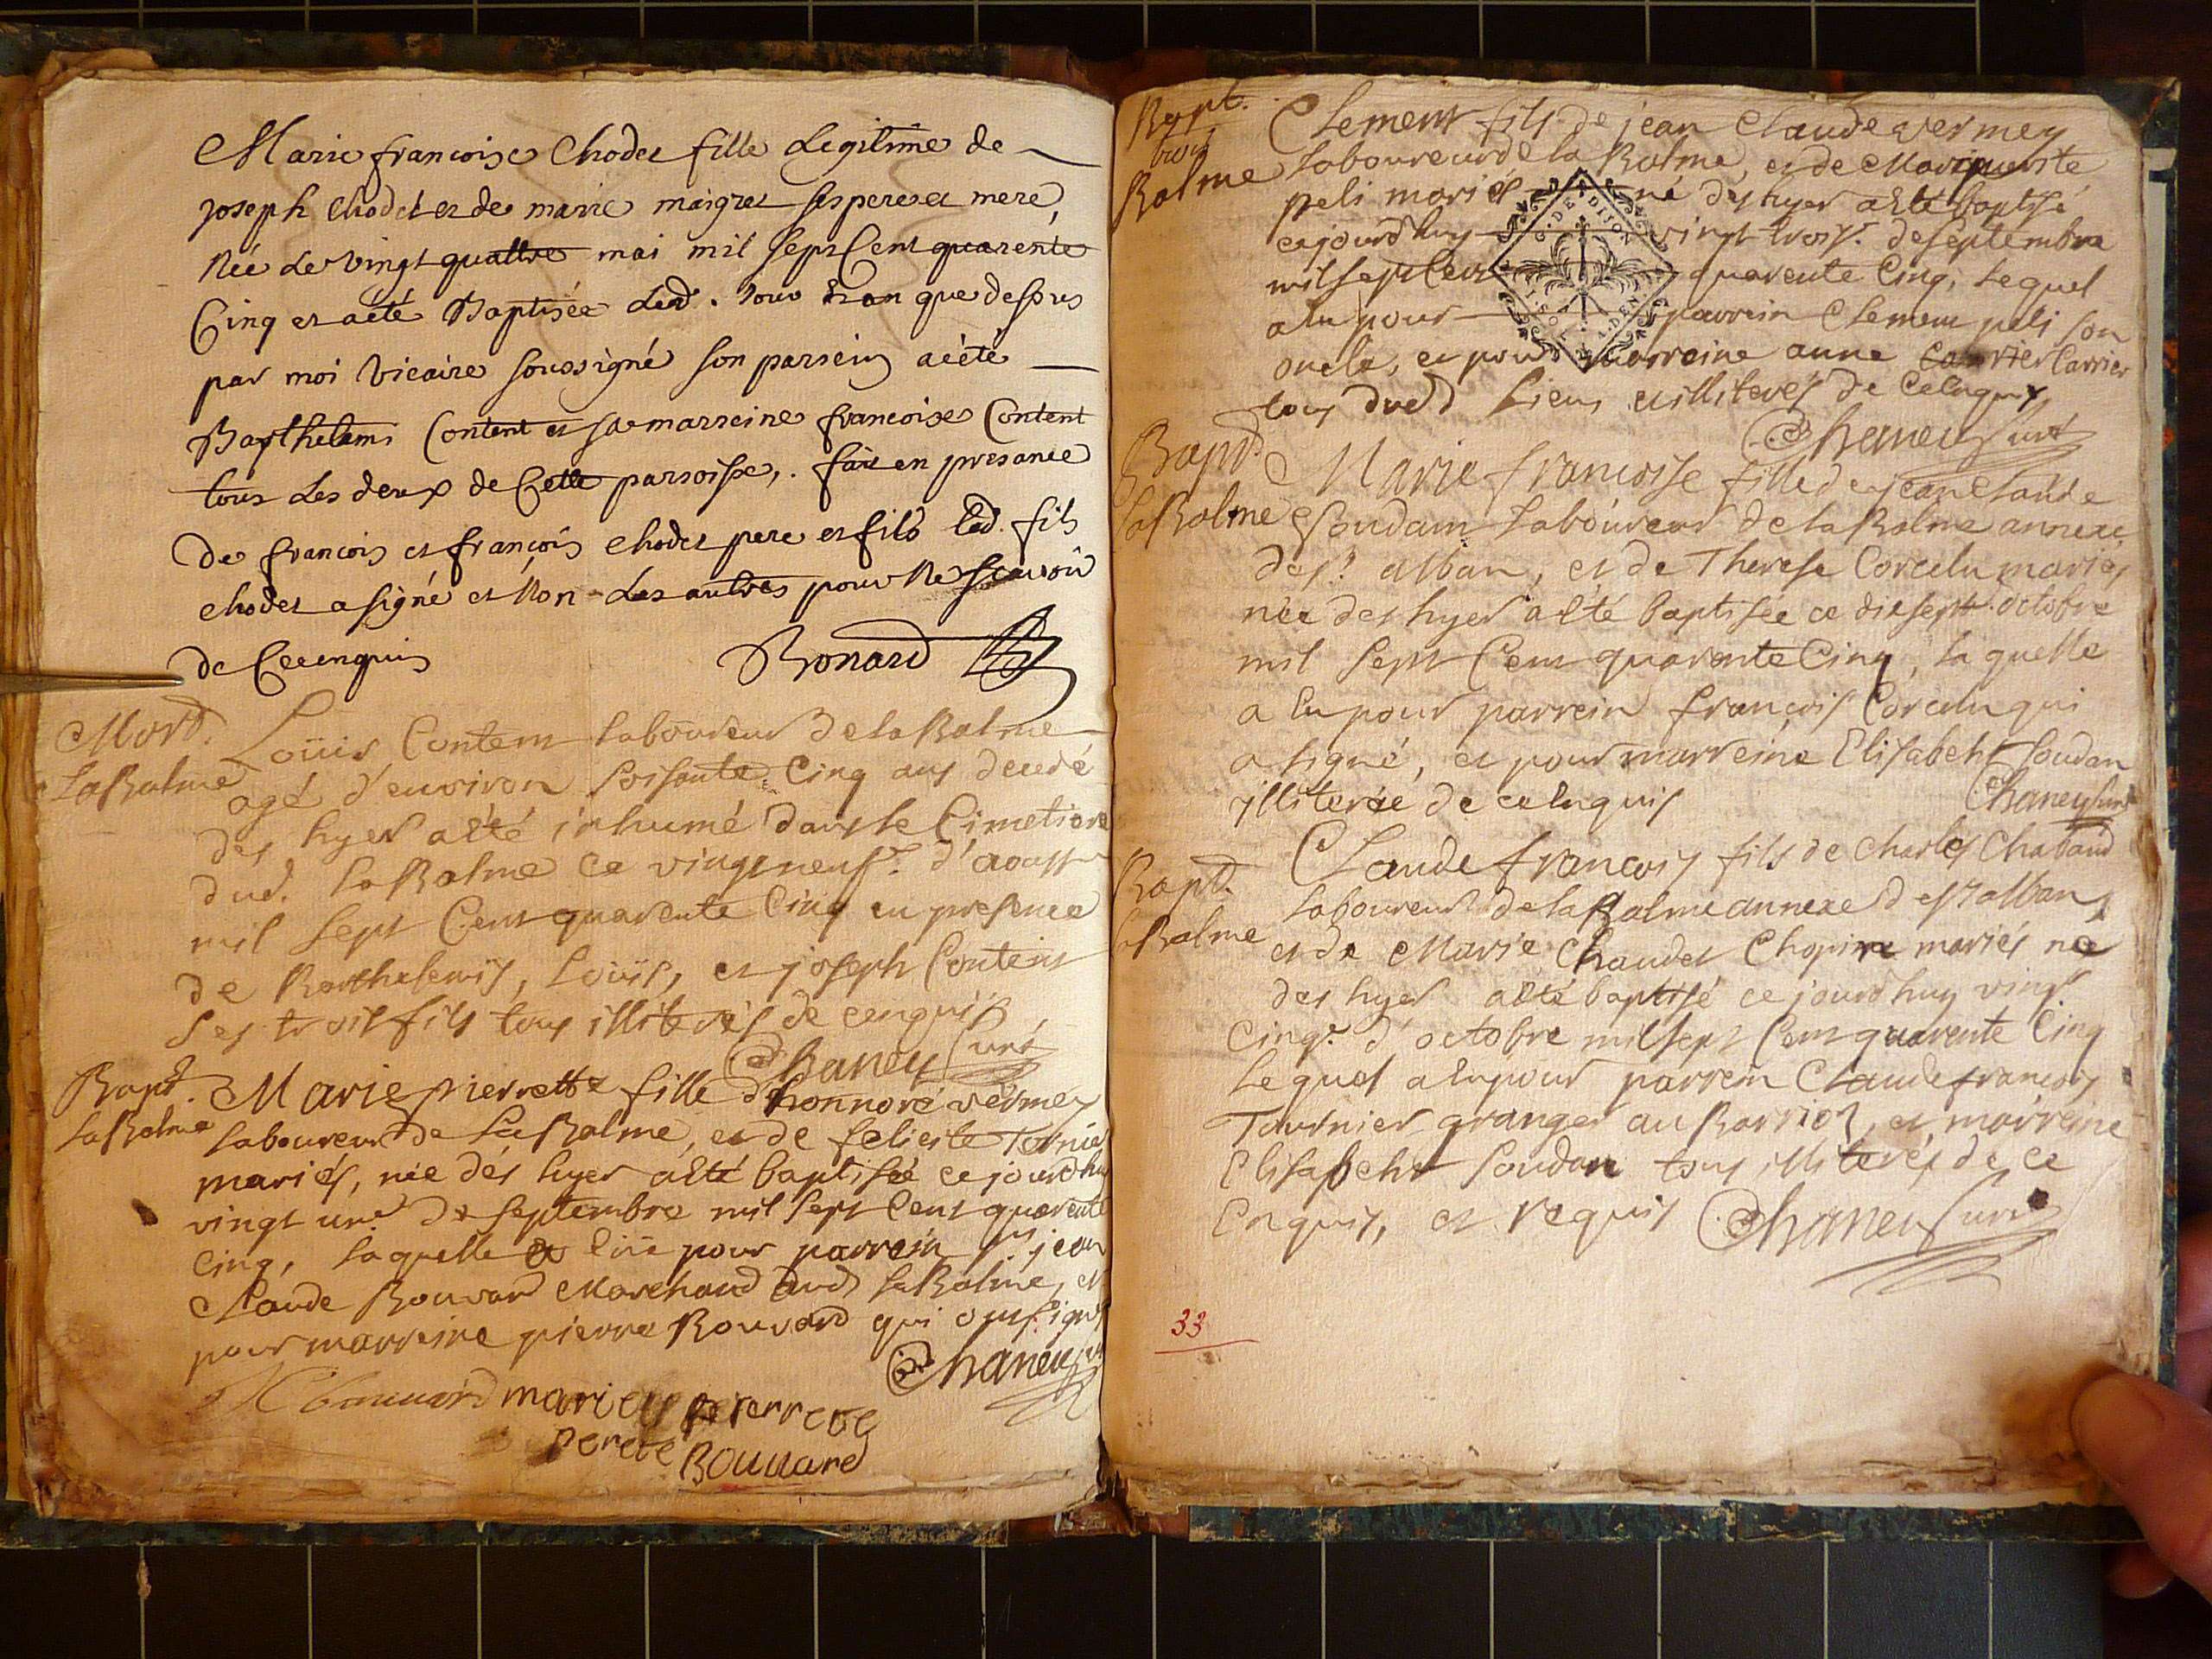 Marie francoise Chodet fille Legitime de
joseph Chodet et de marie maigret ses pere et mere,
Née Le vingt quattre mai mil sept Cent quarente
Cinq et aété Baptisée Led. Jour et an que dessus
par moi vicaire soussigné son parrein aèété
Barthelemi Content et sa marreine francoise Content
tous Les deux de Cette parroisse, . fait en presance
de francois et françois chodet pere et fils led. fils
chodet a signé et Non Les autres pour Ne scavoir
de Ceenquis
Bonard
Mort.
LaBalme
Loüis Content laboureur de la Balme
agé d'environ soisante Cinq ans decedé
des hyer a eté inhumé dans le Cimetiere
dud. la Balme ce vingt neufe. d'aoust
mil sept Cent quarente Cinq en presence
de Barthelemy, Loüis, et joseph Content
ses trois fils tous illiterés de cenquis
Chaney Curé
Bapt.
LaBalme
Marie pierrette fille d'honnoré vermey
laboureur de La Balme, et de felicite Tornier
mariés, née dés hyer a eté baptisée ce jourd'huy
vingt une de septembre mil sept Cent quarente
Cinq, laquelle a eüe pour parrein sr. jean
Claude Bouvard Marchand dud LaBalme, et
pour marreine pierre Bouvard qui ont signé
Chaney
marie pierrete
perete
Bouuard
Bapt.
Balme
Clement fils de jean Claude vermey
laboureur de la Balme, et de Marguerite
peli mariés né des hyer a eté baptisé
cejourdhuy vingt trois. de septembre
mil sept Cent quarente Cinq, Lequel
a eu pour parrein Clement peli son
oncle, et pour marreine anne Carrier
tous dud Lieu illiterés de Celnquis
Chaney Curé
Bapt.
LaBalme
Marie francoise fille de jean Claude
Soudan laboureur de la Balme annexe
de st. alban, et de Therese Corcelu mariés
née des hyer a eté baptisée ce dixsept octobre
mil sept Cent quarente Cinq, laquelle
a eu pour parrein françois Corcelu qui
a signé, et pour marreine Elisabeht Soudan
illiterée de ce enquis
Chaney Curé
Bapt.
LaBalme
Claude francois fils de Charles Chabaud
laboureur de la Balme annexe de st alban,
et de Marie Chaudet Chopine mariés né
des hyer a eté baptisé ce jourdhuy vingt
Cinqe. d'octobre mil sept Cent quarente Cinq
Lequel a eu pour parrein Claude francois
Tournier granger au Barrion, et marreine
Elisabeht Soudan tous illiterés de ce
Enquis, et requis
Chaney Curé
33